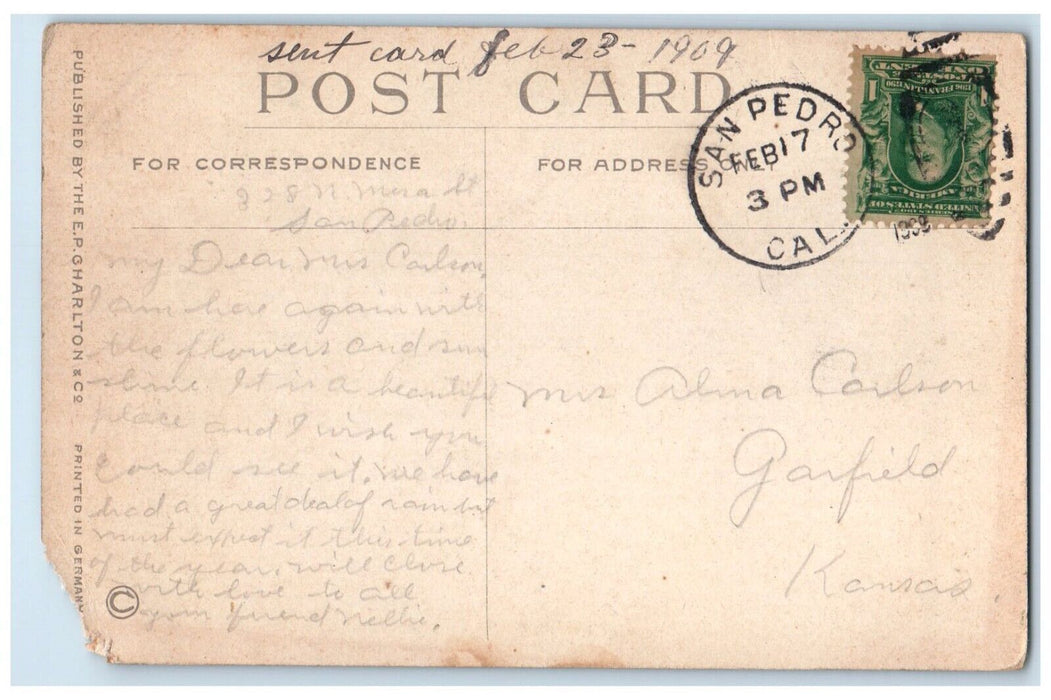 sent card feb 23 - 1909
POST CARD
FOR CORRESPONDENCE
FOR ADDRESS ONLY
SAN PEDRO
FEB 17
3 PM
CAL.
1909
UNITED STATES OF
AMERICA
POSTAGE
ONE CENT
1 1
328 N Mesa St
San Pedro.
My Dear Mrs Carlson,
I am here again with
the flowers and sun
shine. It is a beautiful
place and I wish you
could see it. we have
had a great deal of rain but
must expect it this time
of the year, will close
with love to all
your friend Nellie.
Mrs Alma Carlson
Garfield
Kansas.
PUBLISHED BY THE E.P. CHARLTON & CO. PRINTED IN GERMANY
©